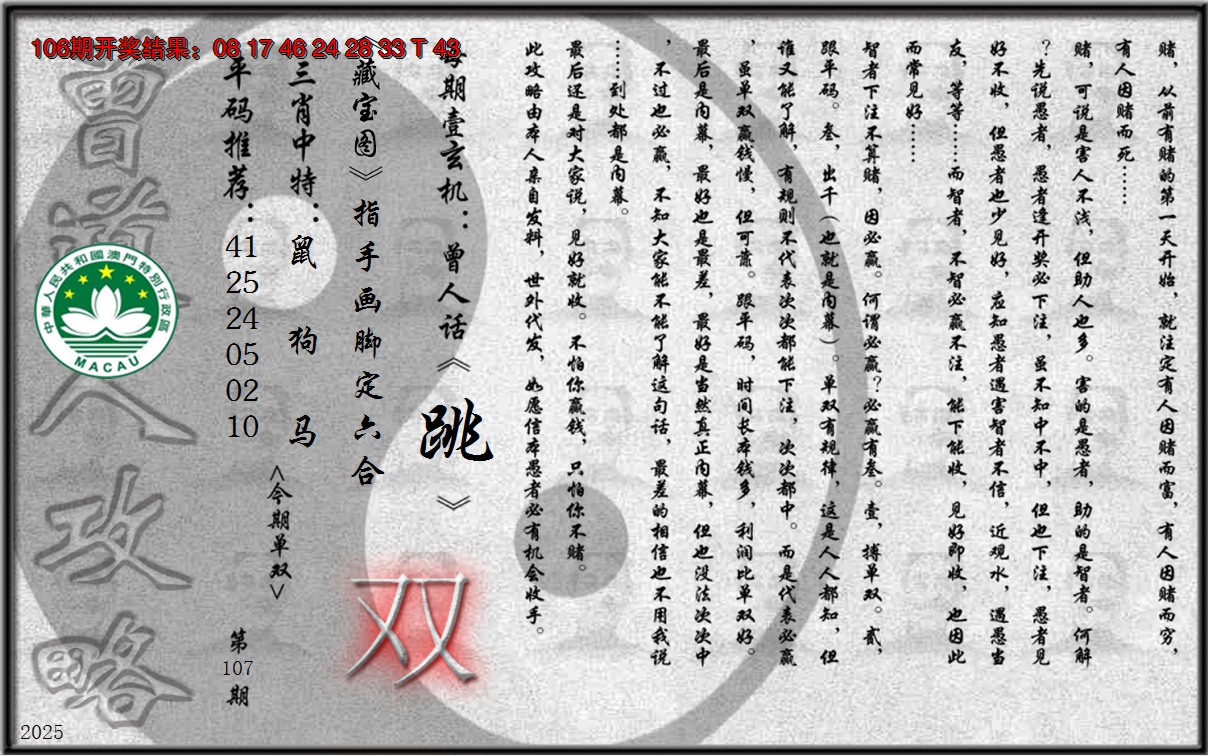 106期开奖结果：08 17 46 24 28 33 T 43
赌，从前有赌的第一天开始，就注定有人因赌而富，有人因赌而穷，
有人因赌而死……
赌，可说是害人不浅，但助人也多。害的是愚者，助的是智者。何解
？先说愚者，愚者逢开奖必下注，虽不知中不中，但也下注，愚者见
好不收，但愚者也少见好，应知愚者遇害智者不信，近观水，遇愚当
友，等等……而智者，不智必赢不注，能下能收，见好即收，也因此
而常见好……
智者下注不算赌，因必赢。何谓必赢？必赢有叁。壹，搏单双。贰，
跟平码。叁，出千（也就是内幕）。单双有规律，这是人人都知，但
谁又能了解，有规则不代表次次都能下注，次次都中。而是代表必赢
，虽单双赢钱慢，但可靠。跟平码，时间长本钱多，利润比单双好。
最后是内幕，最好也是最差，最好是当然真正内幕，但也没法次次中
，不过也必赢，不知大家能不能了解这句话，最差的相信也不用我说
……到处都是内幕。
最后还是对大家说，见好就收。不怕你赢钱，只怕你不赌。
此攻略由本人亲自发料，世外代发，如愿信本愚者必有机会收手。
每期壹玄机：曾人话《跳》
《藏宝图》指手画脚定六合
双
三肖中特：鼠 狗 马
<今期单双>
平码推荐：41 25 24 05 02 10
第107期
曾道人攻略
中華人民共和國澳門特別行政區
MACAU
2025